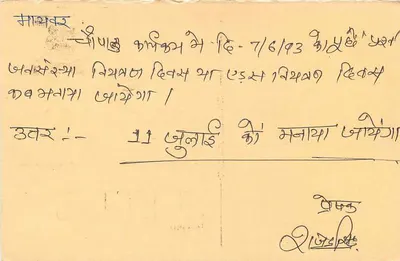 मान्यवर
चौपाल कार्यक्रम मे दि- 7/6/93 को पूछे प्रश्न
जनसंख्या नियंत्रण दिवस या एड्स नियंत्रण दिवस
कब मनाया जायेगा ।
उत्तर :- 11 जुलाई को मनाया जायेगा
प्रेषक